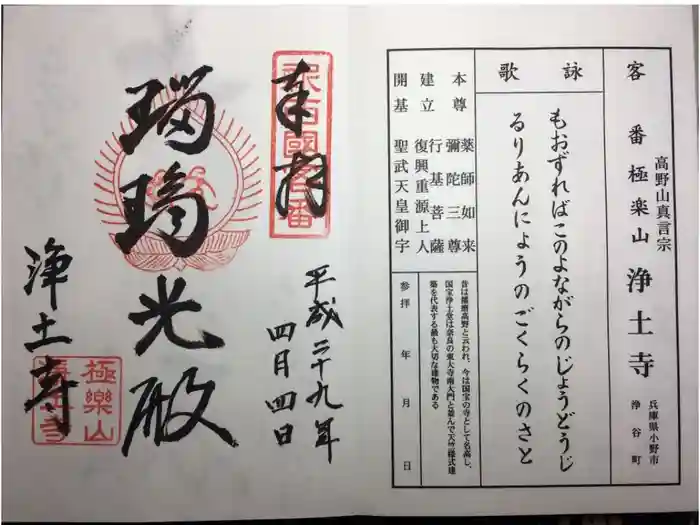 客番極楽山 浄土寺
高野山真言宗
兵庫県小野市
浄谷町
詠歌
もおずればこのよながらのじょうどうじ
るりあんにょうのごくらくのさと
本尊 薬師如来
彌陀三尊
建立 行基菩薩
復興重源上人
開基 聖武天皇御宇
昔は播磨高野と云われ、今は国宝の寺として名高し、
国宝浄土堂は奈良の東大寺南大門と並んで天竺様式建
築を代表する最も大切な建物である
参拝 年 月 日
奉拝
平成二十九年
四月四日
瑠璃光殿
浄土寺
極樂山